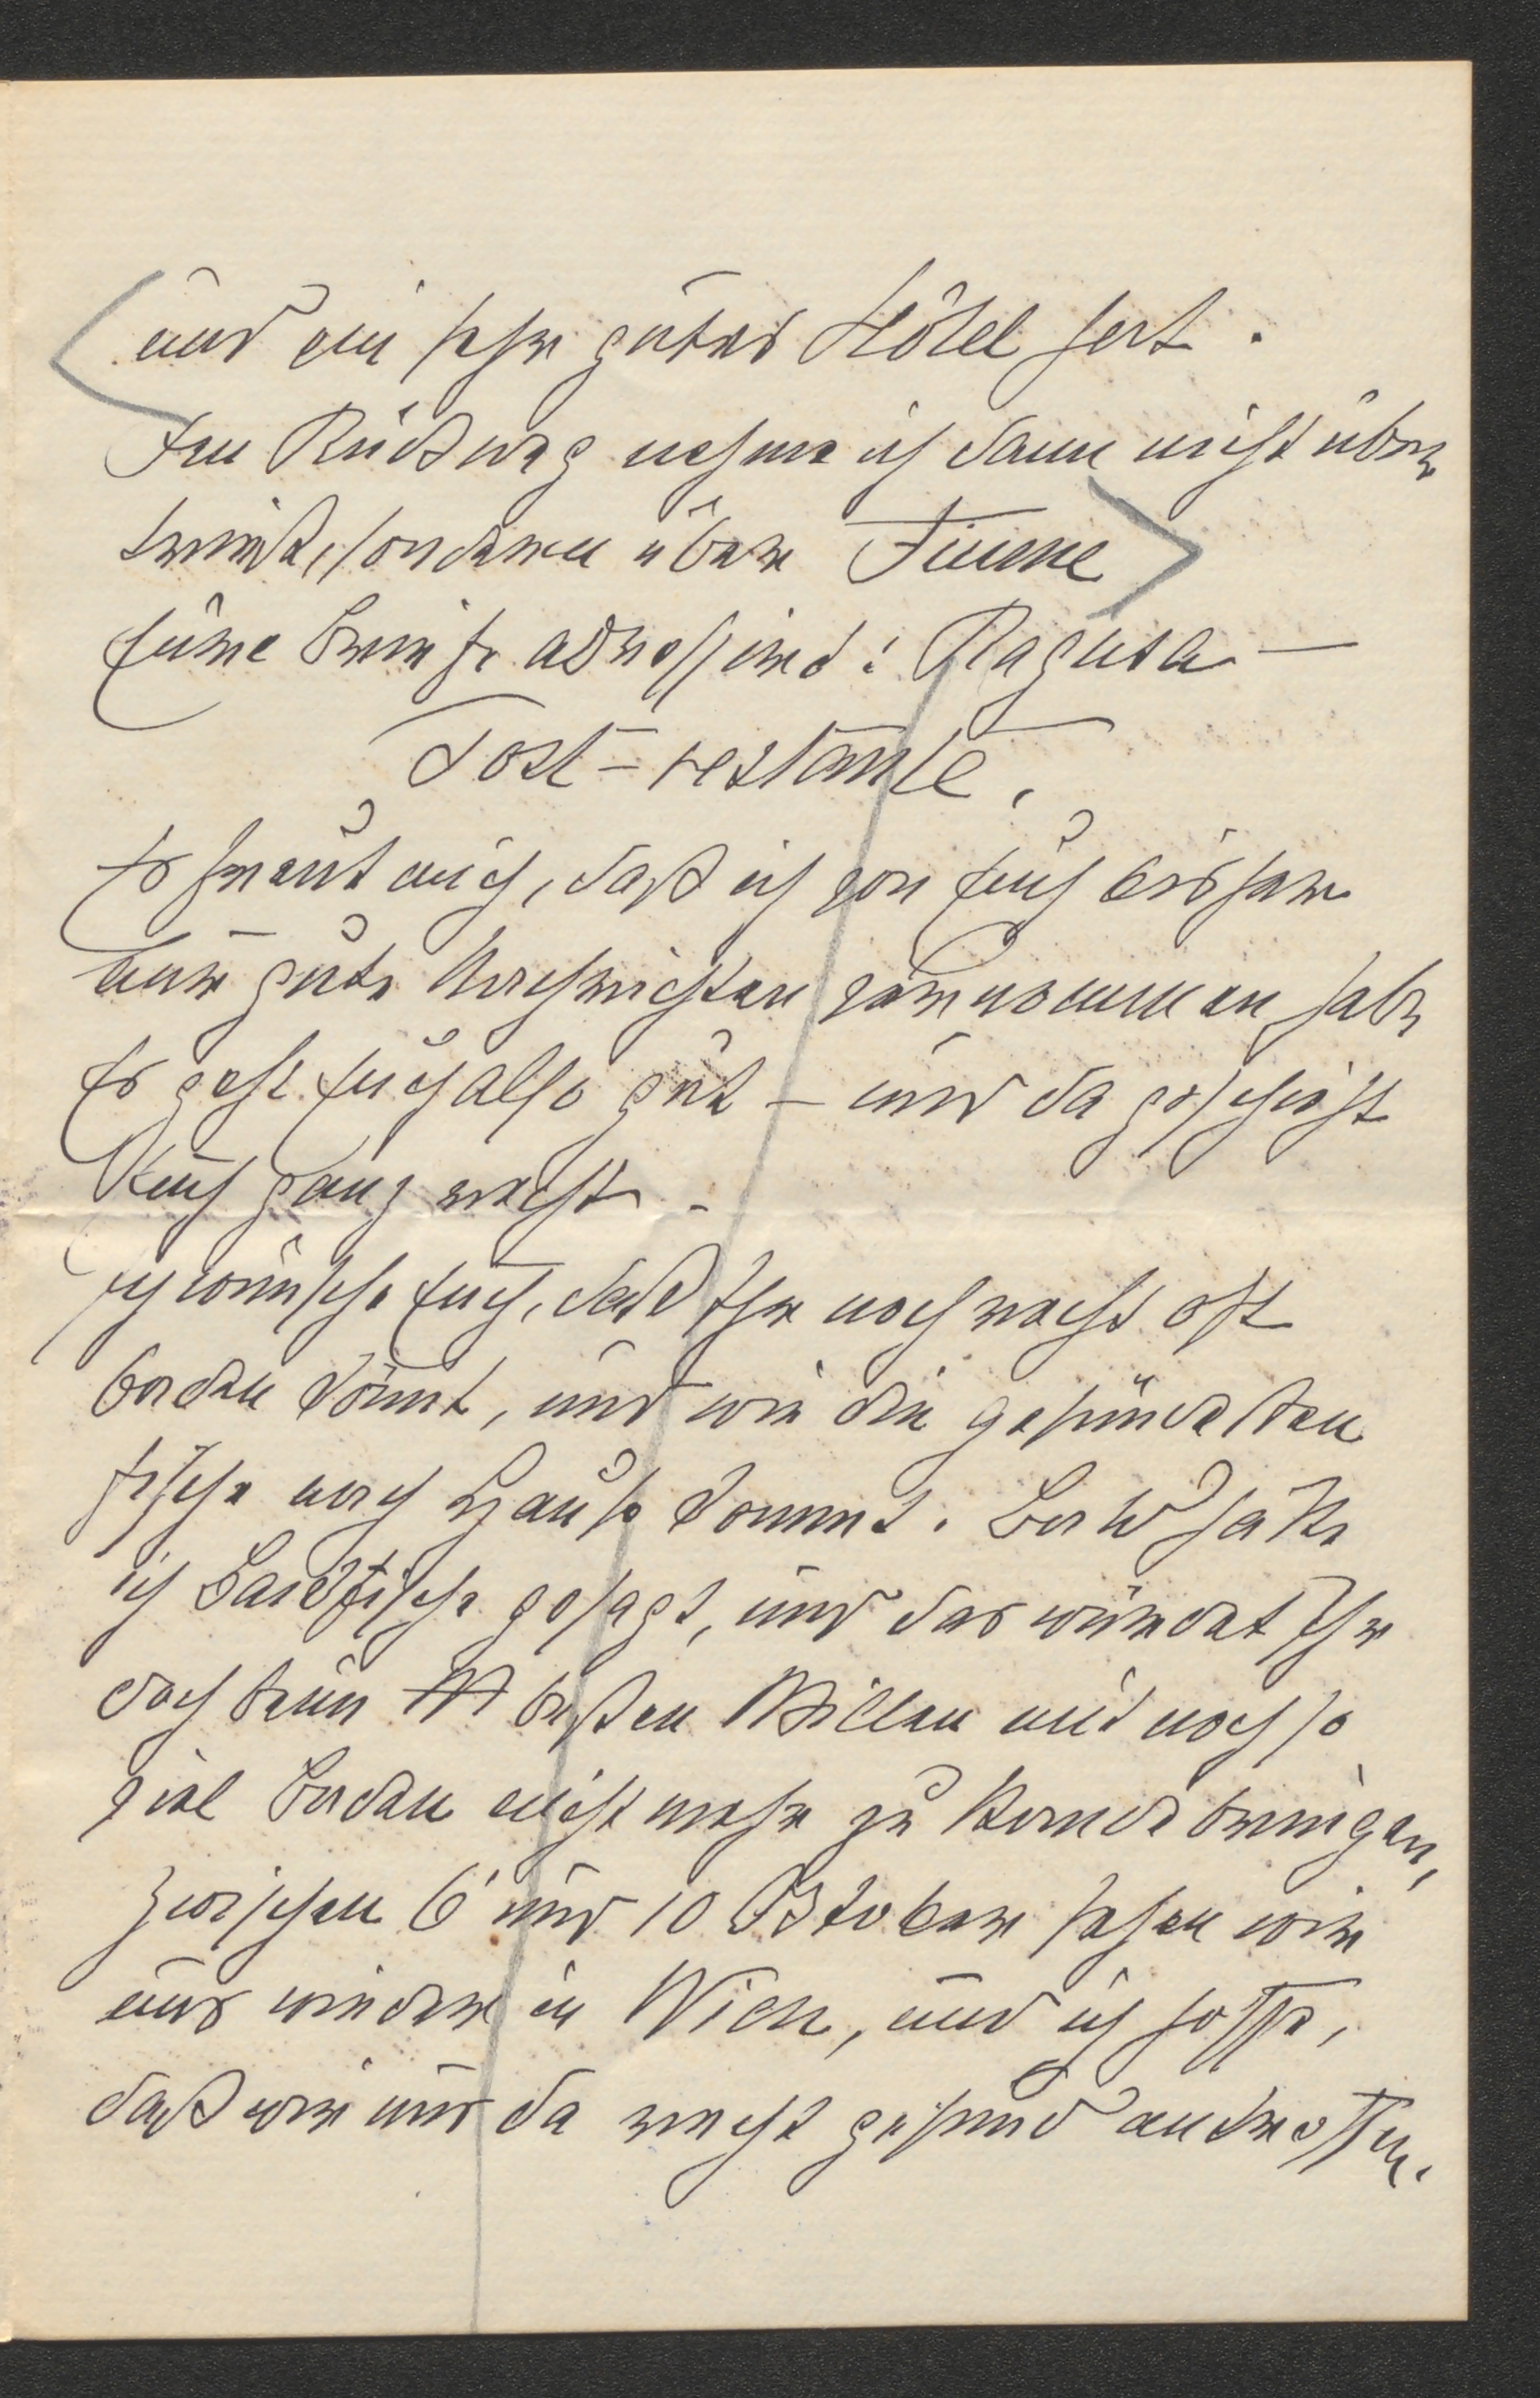 und ein sehr gutes Hôtel hat.
Den Rückweg nehme ich dann nicht über
Triest, sondern über Fiume
Eure Briefe adressirt: Ragusa –
Post-restante.
Es freut mich, daß ich von Euch bisher
nur gute Nachrichten vernommen habe
Es geht Euch also gut – und da geschieht
Euch ganz recht.
Ich wünsche Euch, daß Ihr noch recht oft
baden könnt, und wie die gesündesten
Fische nach Hause kommt. Bald hätte
ich Backfische gesagt, und das würdet Ihr
doch beim besten Willen mit noch so
viel Baden nicht mehr zu Stande bringen,
Zwischen 6 und 10 Oktober sehen wir
uns wieder in Wien, und ich hoffe,
daß wir uns da recht gesund antreffen.